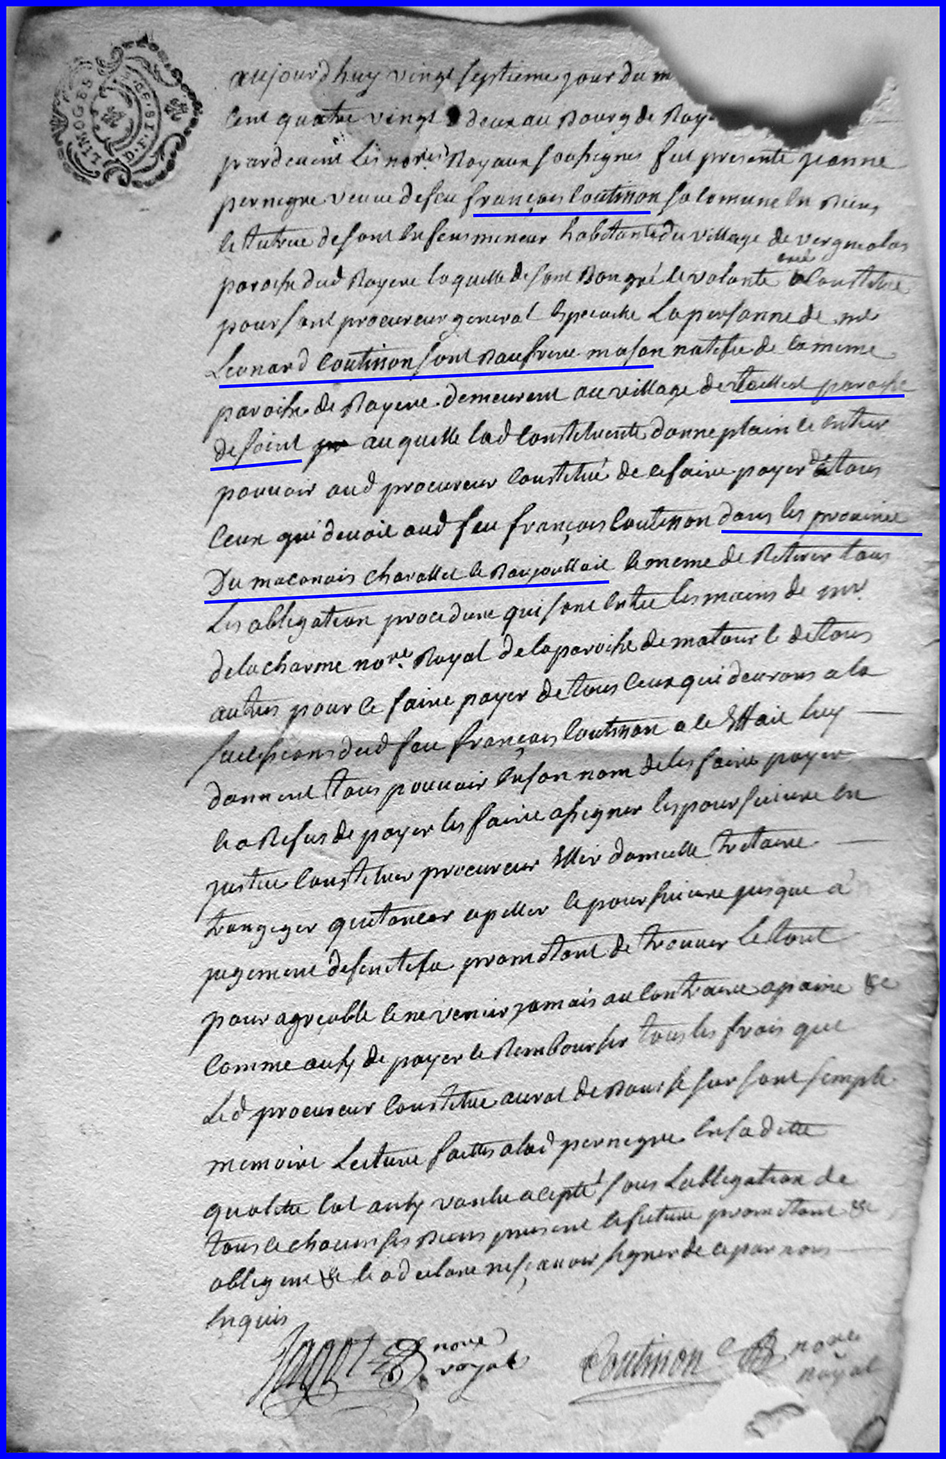 LIMOGES
aujourdhuy vingt septieme jour du m
Cent quatre vingt deux au Bourg de Roy
pardevent Les no.res Royaux sousignes fut presente jeanne
pernegre veuve de feu françois Coutison sa Comune en Biens
et tutrice de sont enfens mineur habitante du village de vergnolas
paroise dud Royere laquelle de sont Bon gré et volonte Constitue
pour sont procureur general espeicalle La personne de
Leonard Coutison sont Baufrere mason natifue de la meme
paroise de Royere demeurent au village de paroise
de saint auquelle lad Constituente donne plain et entier
pouvoir aud procureur Constitué de ce faire payer de tous
Ceux qui devoit aud feu françois Coutison dans les province
Du maconais charollet et Baujoullait et meme de Retirer tous
Les obligation procedure qui sont entre les mains de mr
de lacharme no.re Royal de la paroise de matour et de tous
autres pour ce faire payer de tous Ceux qui devrons a la
sucession dud feu françois Coutison a cet Effait luy
donnent tous pouvoir en son nom de les faire payer
en a Refus de payer les faire asigner les poursuivre en
justice Constituer procureur Ellir domicille
quitancer apeller et poursuivre jusque à
jugement definitife promettent de trouver le tout
pour agreable et ne venir jamais au Contraire apaine &c
Comme ausy de payer et Rembourser tous les frais que
Led procureur Constitue aurat de Bourse sur sont semple
memoire Lecture faitte a lad pernegre en sa ditte
qualite lat ausy voulu acepté sous Lobligation de
tous et chacun ses Biens present et future promettent &c
obligent &c et a declare ne sçavoir signer de ce par nous
Enquis
no.re royal
Coutison no.re royal